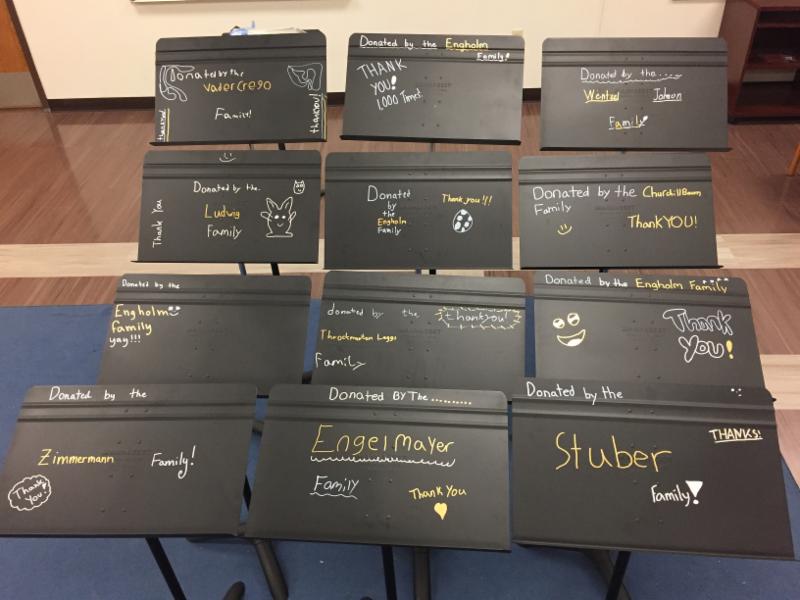 Donated by the
VaderCrego
Family!
thankyou!
thankyou!
Donated by the Engholm
Family!
THANK
YOU!
1,000 Times!
Donated by the....
Wentzel
Family!
Donated by the.
Ludwig
Family
Thank You
Donated
by
the
Engholm
Family
Thank you!!!
Donated by the ChurchillBown
Family
ThankYOU!
Donated by the
Engholm
family
yay!!!
donated by the
thankyou!
Throckmorton Leggs
Family
Donated by the Engholm Family
Thank
You!
Donated by the
Zimmermann
Family!
Thank
You!
Donated By The..........
Engelmayer
Family
Thank You
Donated by the
THANKS!
Stuber
Family!